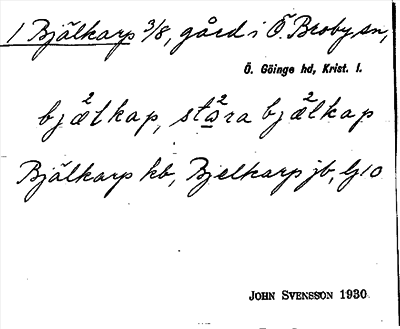 1 Bjälkarp 3/8, gård i Ö. Broby sn,
Ö. Göinge hd, Krist. l.
bjæ²lkap, sta²ra bjæ²lkap
Bjälkarp kb, Bjelkarp jb,
JOHN SVENSSON 1930